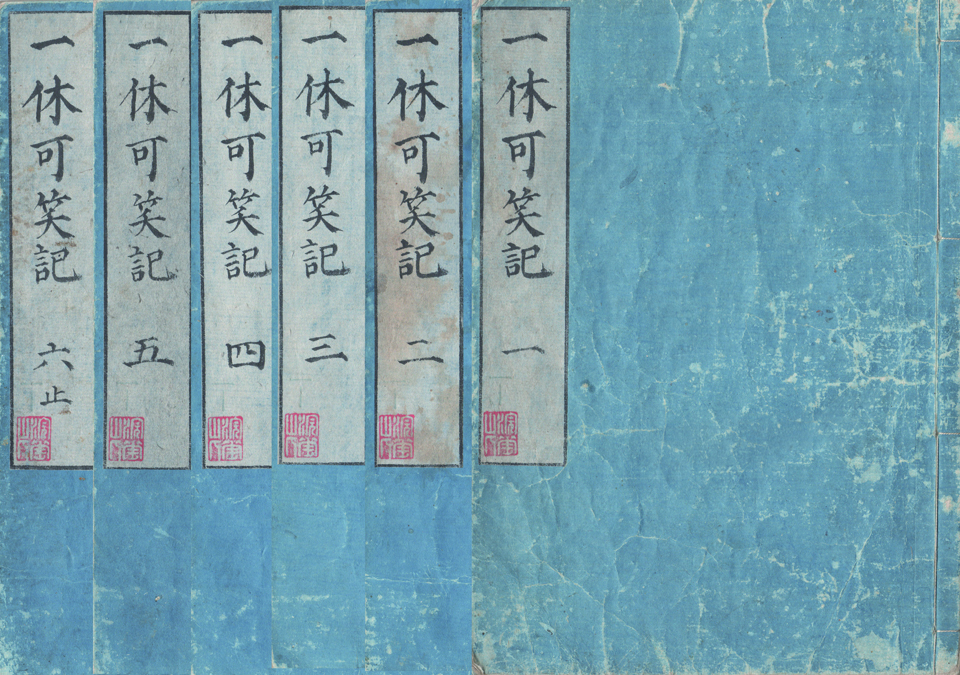 一休可笑記 一
一休可笑記 二
一休可笑記 三
一休可笑記 四
一休可笑記 五
一休可笑記 六止